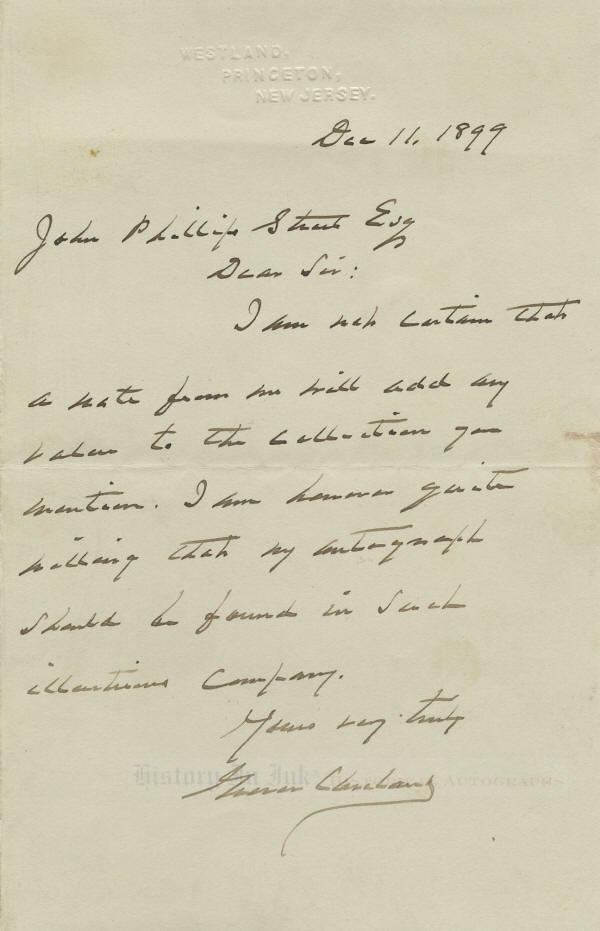 WESTLAND.
PRINCETON,
NEW JERSEY.
Dec 11, 1899
John Phillip Street Esq
Dear Sir:
I am not certain that
a note from me will add any
value to the collection you
mention. I am however quite
willing that my autograph
should be found in such
illustrious company.
Yours very truly
Grover Cleveland
History In Ink® HISTORICAL AUTOGRAPHS